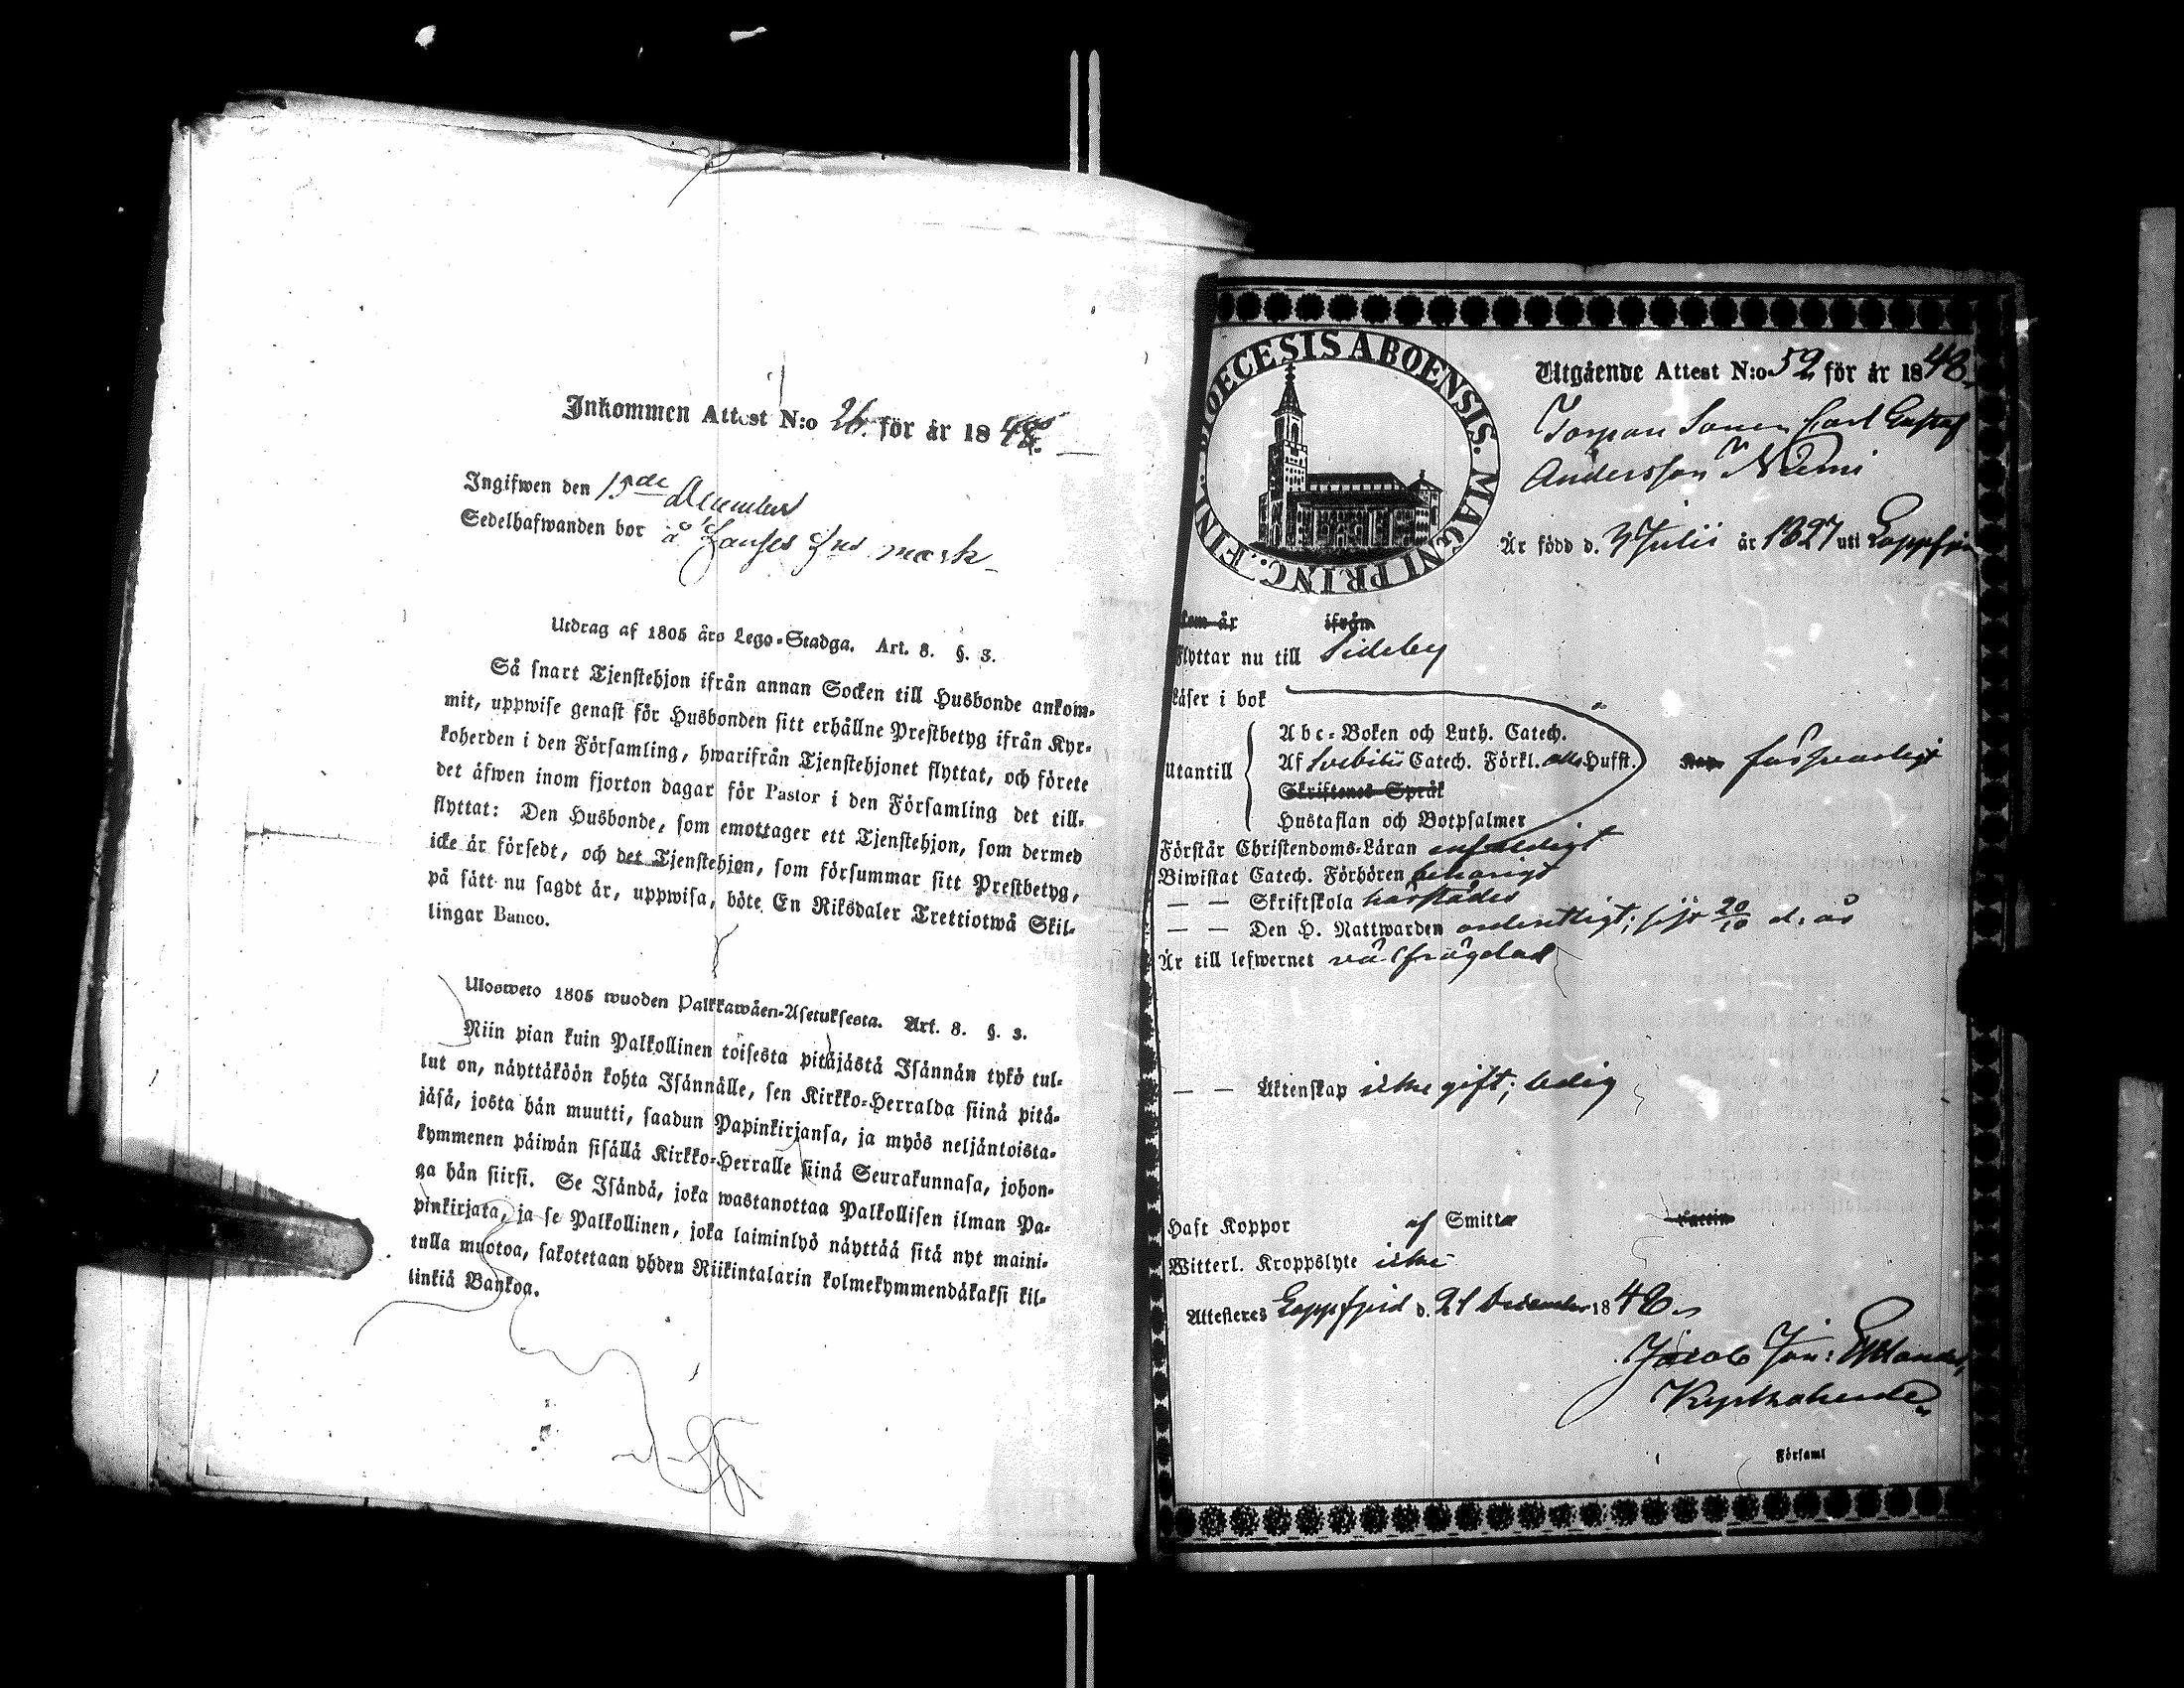 Inkommen Attest N:o 26. för år 1848.
Ingifwen den 15de December
Sedelhafwanden bor å mark
Utdrag af 1805 års Lego-Stadga. Art. 8. §. 3.
Så snart Tjenstehjon ifrån annan Socken till Husbonde ankom-
mit, uppwise genast för Husbonden sitt erhållne Prestbetyg ifrån Kyr-
koherden i den Församling, hwarifrån Tjenstehjonet flyttat, och förete
det äfwen inom fjorton dagar för Pastor i den Församling det till-
flyttat: Den Husbonde, som emottager ett Tjenstehjon, som dermed
icke är försedt, och det Tjenstehjon, som försummar sitt Prestbetyg,
på sätt nu sagdt är, uppwisa, böte En Riksdaler Trettiotwå Skil-
lingar Banco.
Ulosweto 1805 wuoden Palkkawäen-Asetuksesta. Art. 8. §. 3.
Niin pian kuin Palkollinen toisesta pitäjästä Isännän tykö tul-
lut on, näyttäköön kohta Isännälle, sen Kirkko-Herralda siinä pitä-
jäsä, josta hän muutti, saadun Papinkirjansa, ja myös neljäntoista-
kymmenen päiwän sisällä Kirkko-Herralle siinä Seurakunnasa, johon-
ga hän siirsi. Se Isändä, joka wastanottaa Palkollisen ilman Pa-
pinkirjata, ja se Palkollinen, joka laiminlyö näyttää sitä nyt maini-
tulla muotoa, sakotetaan yhden Riikintalarin kolmekymmendäkaksi kil-
linkiä Bankoa.
DIOECESIS ABOENSIS. MAGNI PRINC. FINL.
Utgående Attest N:o 52 för år 1848.
Torpare Sonen Carl Gustaf
Andersson Niemi
Är född d. 3 Julii år 1827 uti Lappfjerd
kom år ifrån
Flyttar nu till Sideby
Läser i bok
Utantill
Abc-Boken och Luth. Catech.
Af Svebilii Catech. Förkl. alla Hufst. försvarligt
Skriftenes Språk
Hustaflan och Botpsalmer
Förstår Christendoms-Läran enfaldigt
Biwistat Catech. Förhören behörigt
— — Skriftskola härstädes
— — Den H. Nattwarden ordentligt; sist 20/10 d. år
Är till lefwernet välfrägdad
— — Äktenskap icke gift; ledig
Haft Koppor af Smitta vaccin
Witterl. Kroppslyte icke
Attesteres Lappfjerd d. 21 December 1848.
Jacob Joh:
Kyrkoherde
Församl